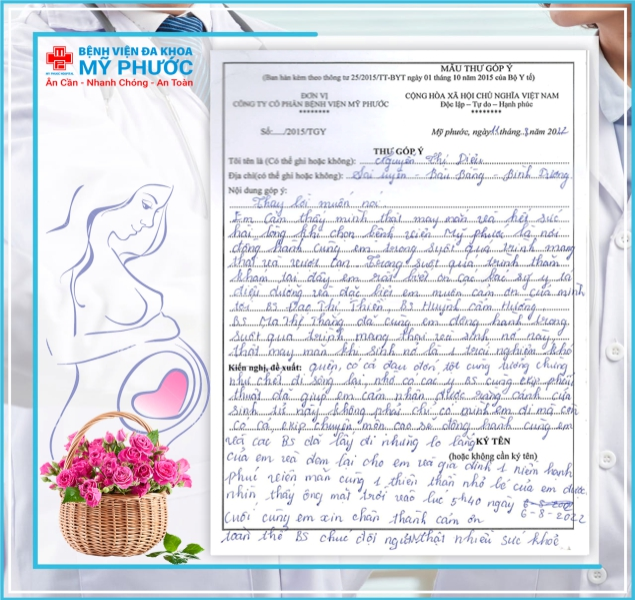 BỆNH VIỆN ĐA KHOA
MỸ PHƯỚC
MY PHUOC HOSPITAL
Ân Cần - Nhanh Chóng - An Toàn
MẪU THƯ GÓP Ý
(Ban hàn kèm theo thông tư 25/2015/TT-BYT ngày 01 tháng 10 năm 2015 của Bộ Y tế)
ĐƠN VỊ
CÔNG TY CỔ PHẦN BỆNH VIỆN MỸ PHƯỚC
********
CỘNG HÒA XÃ HỘI CHỦ NGHĨA VIỆT NAM
Độc lập – Tự do – Hạnh phúc
********
Số:...../2015/TGY
Mỹ phước, ngày 11 tháng 8 năm 2022
THƯ GÓP Ý
Tôi tên là (Có thể ghi hoặc không): Nguyễn Thị Diệu
Địa chỉ(có thể ghi hoặc không): Lai Uyên - Bàu Bàng - Bình Dương
Nội dung góp ý:
Thay lời muốn nói
Em cảm thấy mình thật may mắn và hết sức
hài lòng khi chọn bệnh viện Mỹ phước là nơi
đồng hành cùng em trong suốt quá trình mang
thai và vượt cạn. Trong suốt quá trình thăm
khám tại đây em rất biết ơn các bác sỹ y tá
điều dưỡng và đặc biệt em muốn cảm ơn của mình
tới BS Đào Thị Thiên, BS Huỳnh Cẩm Hường
BS Ma Thị Thằng đã cùng em đồng hành trong
suốt quá trình mang thai và sinh nở này
thật may mắn khi sinh nở là trải nghiệm khó
Kiến nghị, đề xuất: quên, có cả đau đớn tột cùng tưởng chừng
như chết đi sống lại, nhờ có các y BS cùng ekip phẫu
thuật đã giúp em cảm nhận được rằng cánh cửa
sinh tử này không phải chỉ có mình em đi mà còn
có cả ekip chuyên môn cao sẽ đồng hành cùng em
và các BS đã lấy đi những lo lắng
KÝ TÊN
(hoặc không cần ký tên)
của em và đem lại cho em và gia đình 1 niềm hạnh
phúc viên mãn cùng 1 thiên thần nhỏ bé của em được
nhìn thấy ông mặt trời vào lúc 5h40 ngày
6-8-2022
Cuối cùng em xin chân thành cảm ơn
toàn thể BS chúc đội ngũ thật nhiều sức khỏe